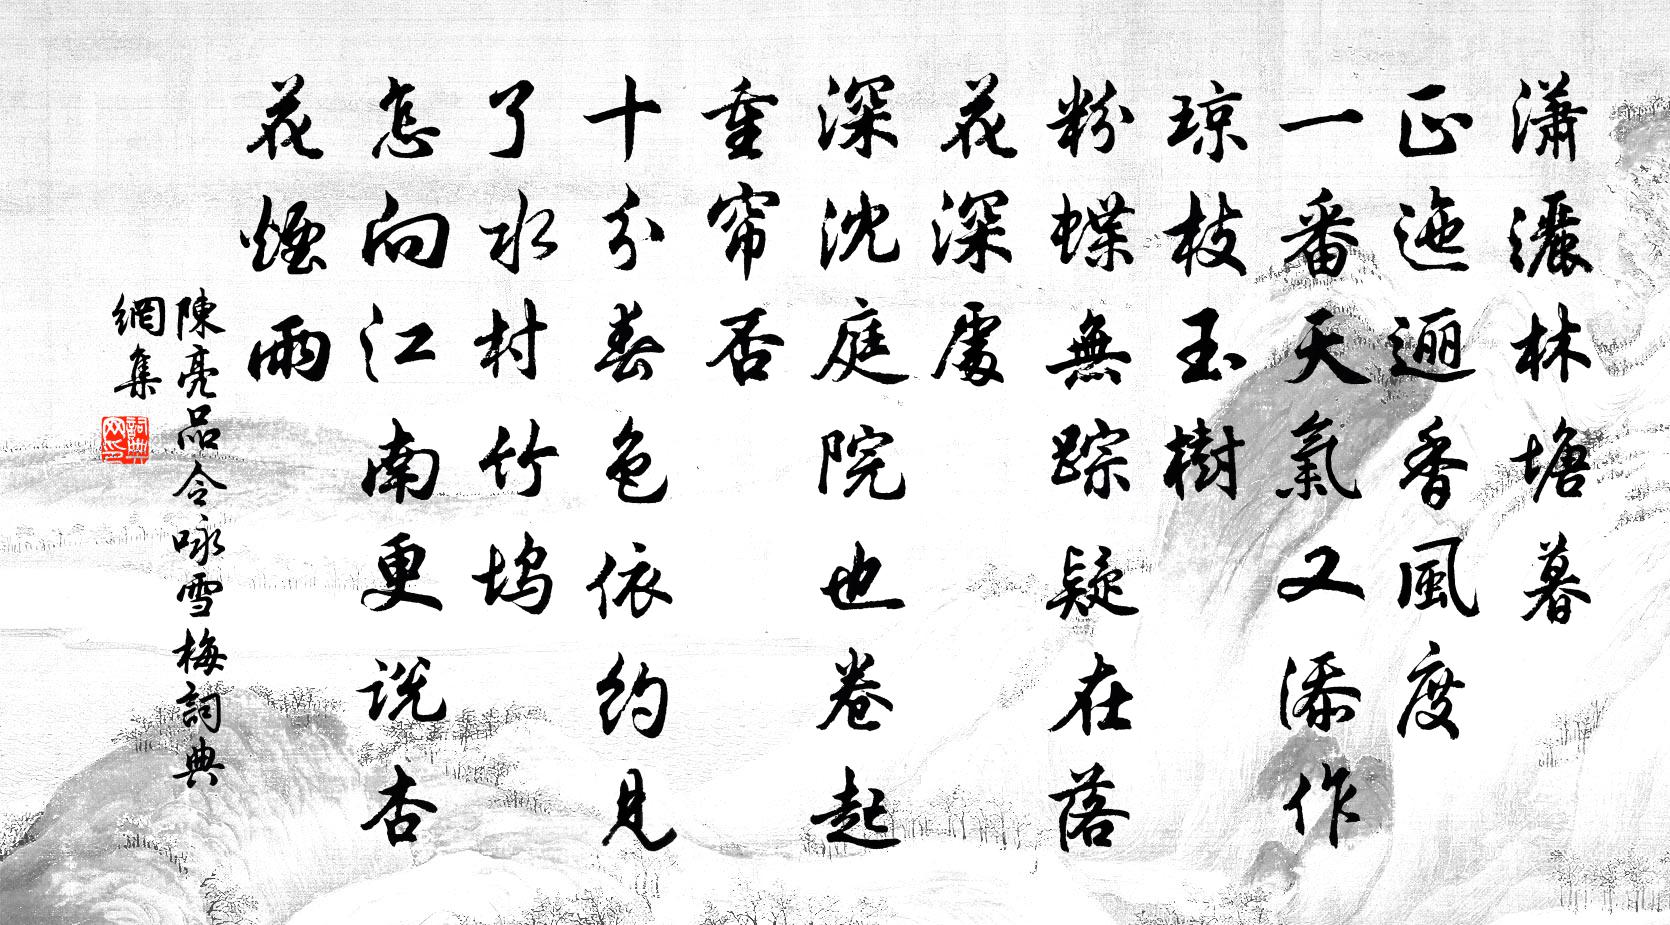 瀟灑林塘暮
正迤逦香風度
一番天氣又添作
瓊枝玉樹
粉蝶無踪疑在落
花深處
深沈庭院也卷起
重帘否
十分春色依約見
了水村竹塢
怎向江南更説杏
花煙雨
陳亮品令咏雪梅詞典
網集
詞典